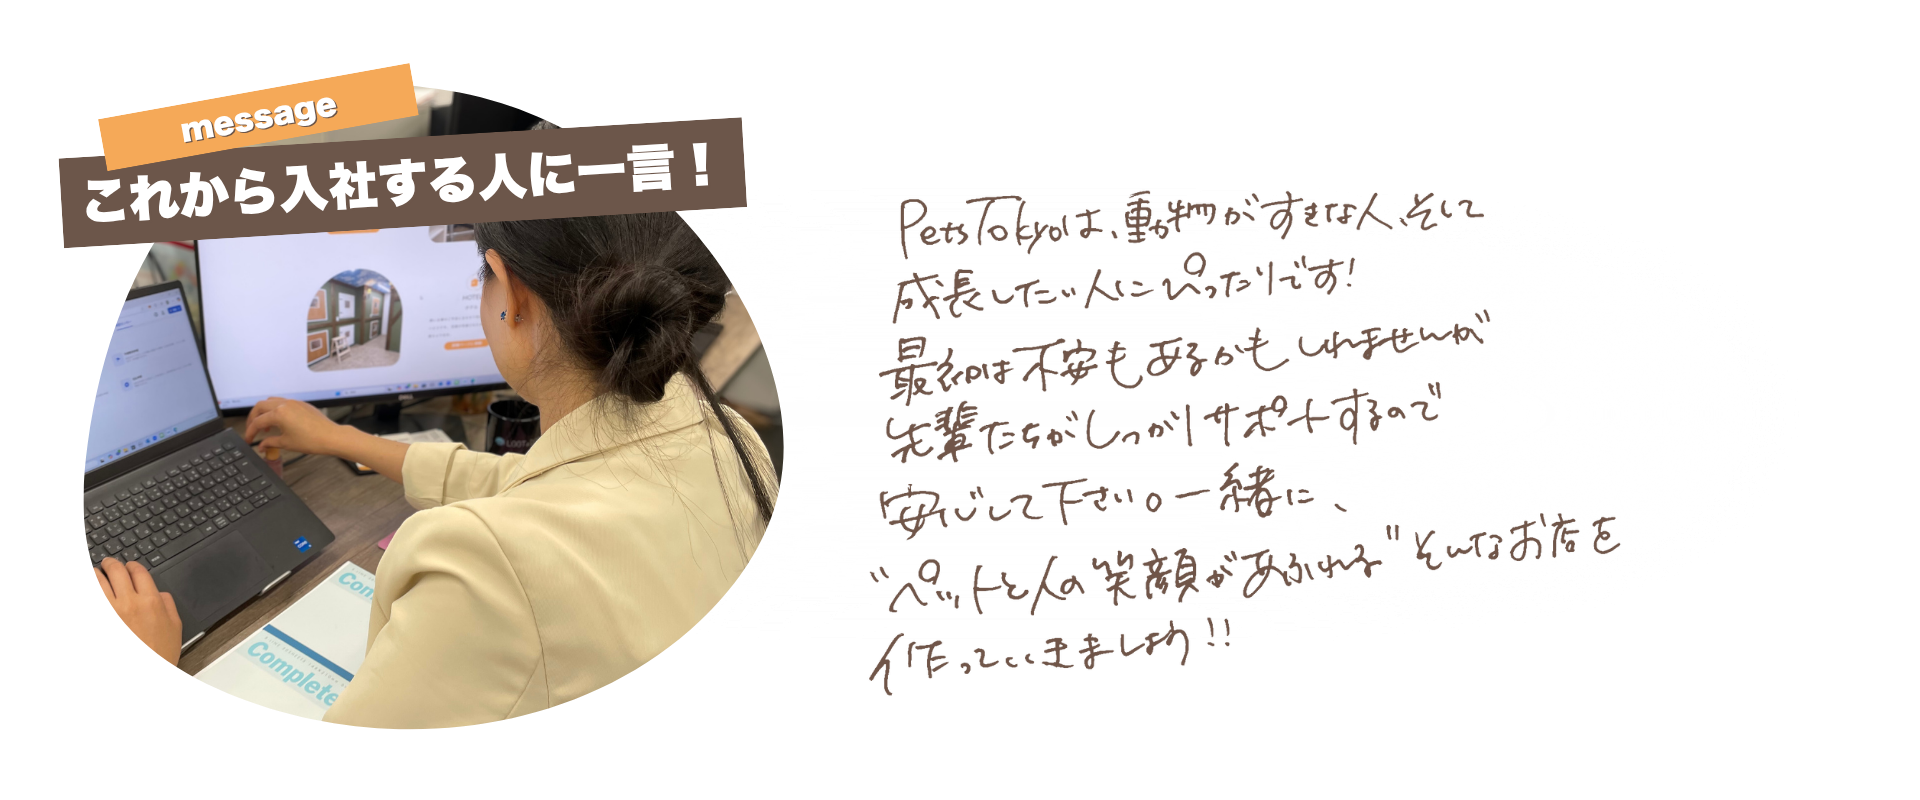 message
これから入社する人に一言！
PetsTokyoは、動物がすきな人、そして
成長したい人にぴったりです!
最初は不安もあるかもしれませんが
先輩たちがしっかりサポートするので
安心して下さい。一緒に、
"ペットと人の笑顔があふれる"そんなお店を
作っていきましょう!!
HOTEL
Com
Complete